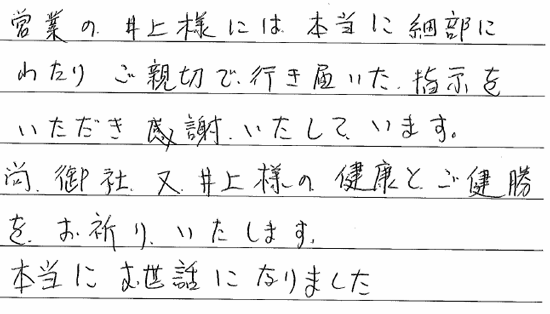 営業の井上様には本当に細部に
わたりご親切で行き届いた指示を
いただき感謝いたしています。
尚、御社又井上様の健康とご健勝
をお祈りいたします。
本当にお世話になりました